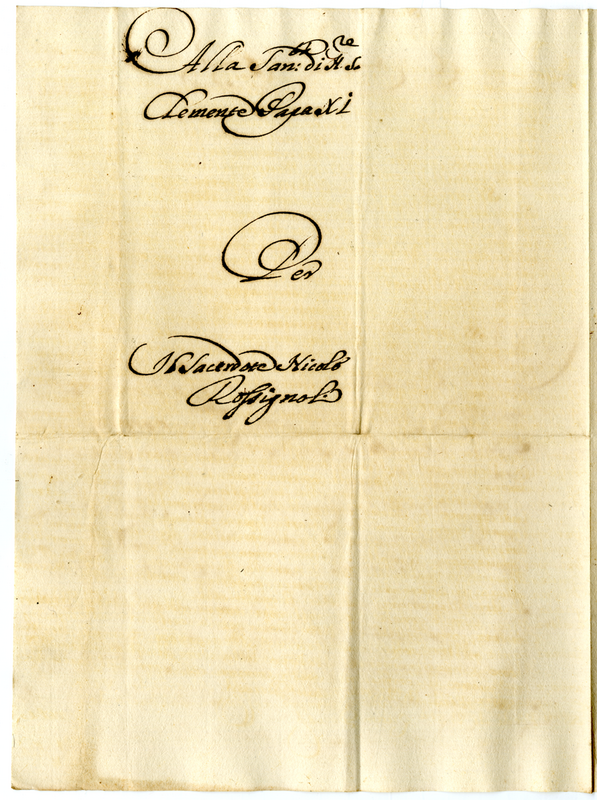 Alla San:tà di N. S.re
Clemente Papa XI
Per
Il Sacerdote Nicolò
Rossignoli